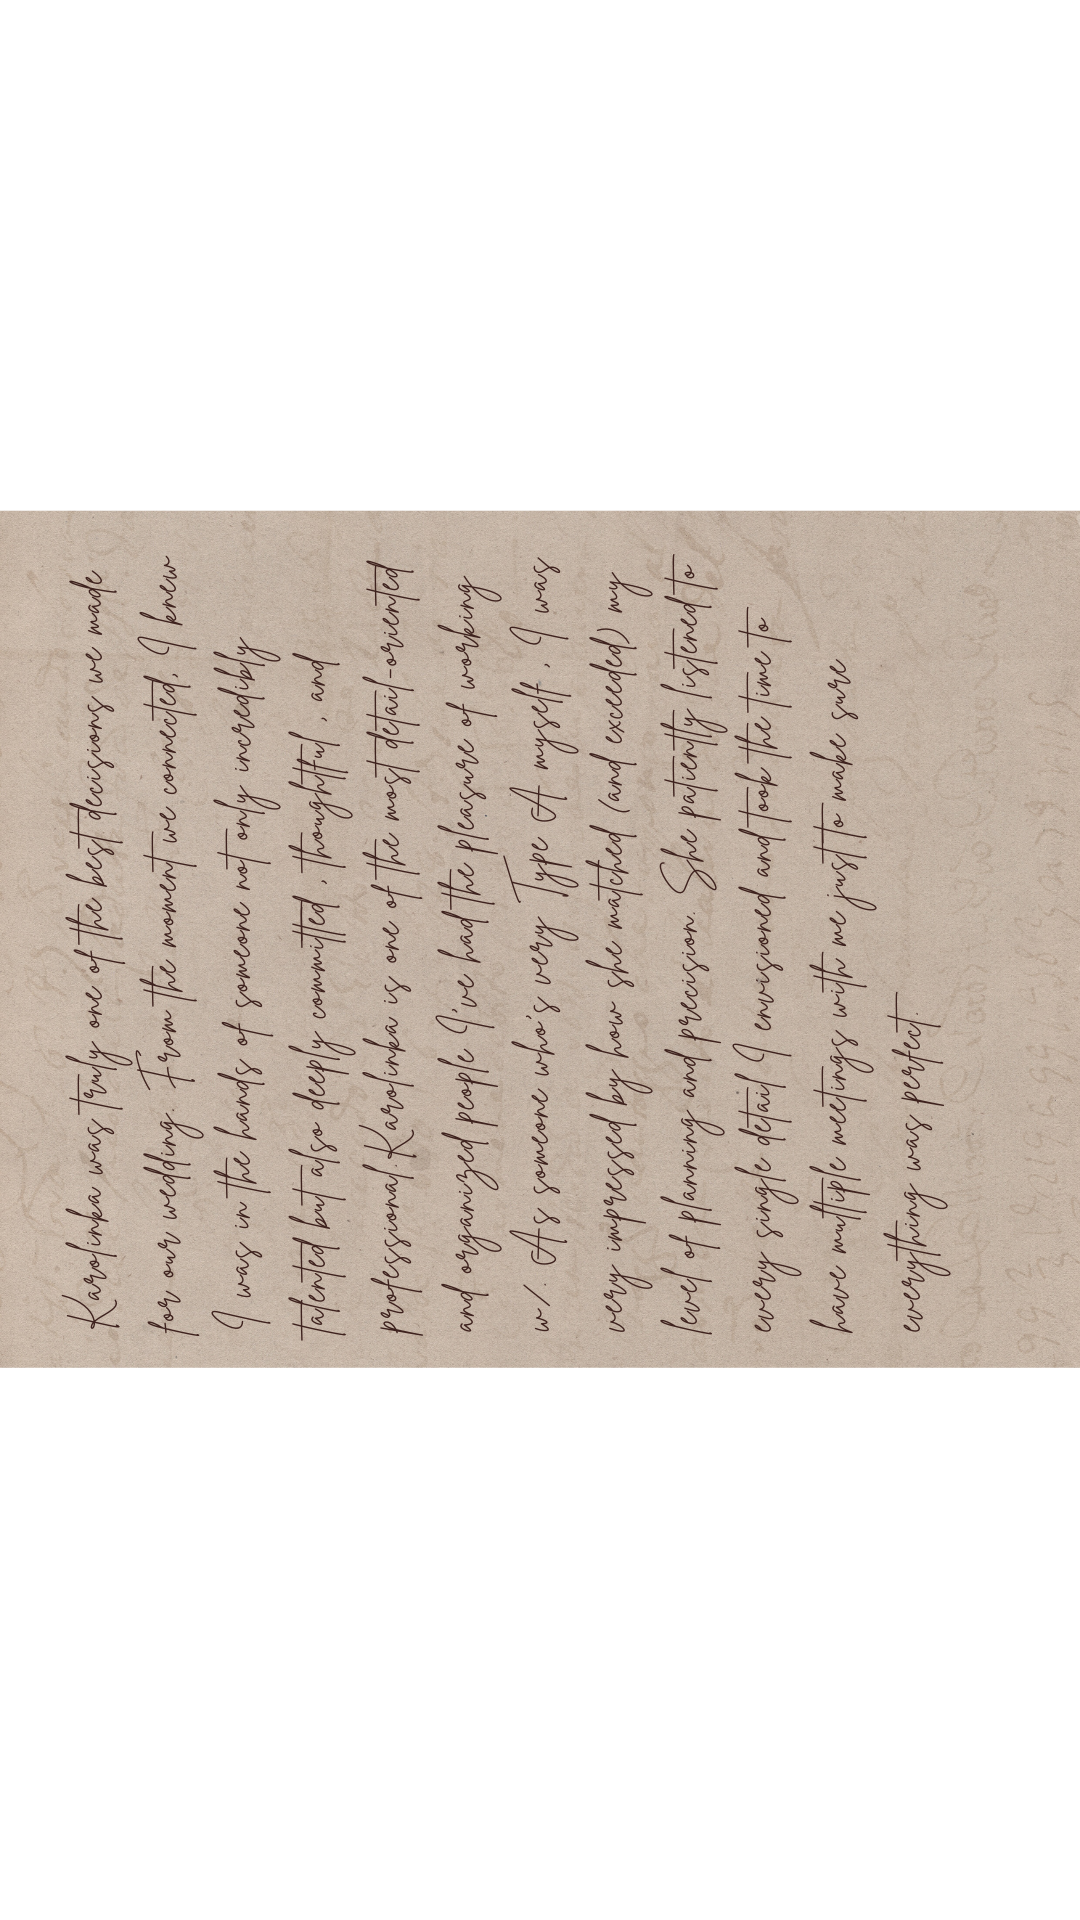 Karolinka was truly one of the best decisions we made
for our wedding. From the moment we connected, I knew
I was in the hands of someone not only incredibly
talented but also deeply committed, thoughtful, and
professional. Karolinka is one of the most detail-oriented
and organized people I've had the pleasure of working
w/. As someone who's very Type A myself, I was
very impressed by how she matched (and exceeded) my
level of planning and precision. She patiently listened to
every single detail I envisioned and took the time to
have multiple meetings with me just to make sure
everything was perfect.